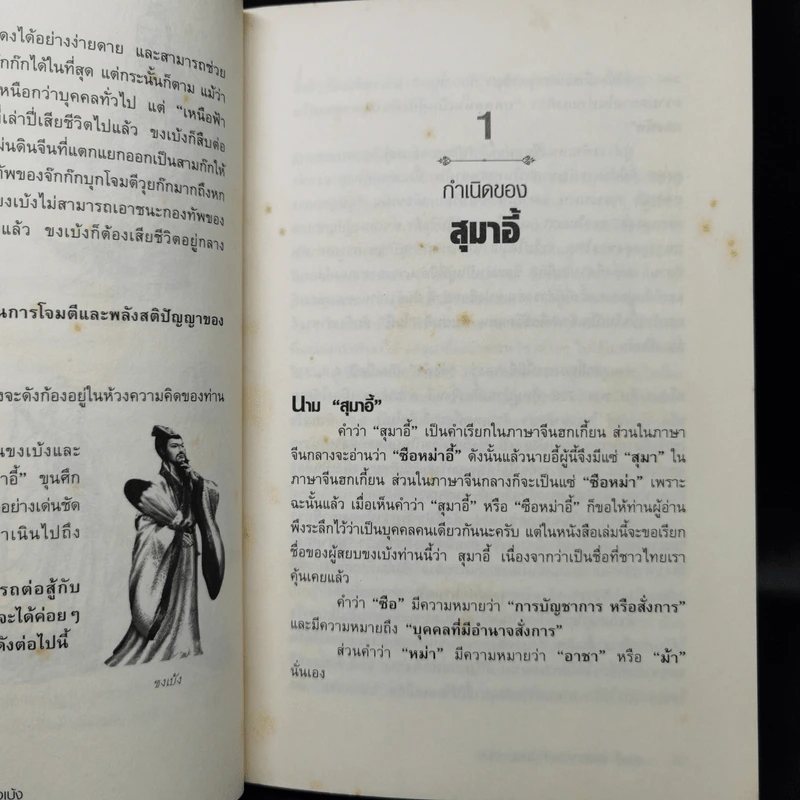 ดงได้อย่างง่ายดาย และสามารถช่วย
กก๊กได้ในที่สุด แต่กระนั้นก็ตาม แม้ว่า
หนือกว่าบุคคลทั่วไป แต่ “เหนือฟ้า
เล่าปี่เสียชีวิตไปแล้ว ขงเบ้งก็สืบต่อ
ผ่นดินจีนที่แตกแยกออกเป็นสามก๊กให้
ทัพของจ๊กก๊กบุกโจมตีวุยก๊กมากถึงหก
งเบ้งไม่สามารถเอาชนะกองทัพของ
แล้ว ขงเบ้งก็ต้องเสียชีวิตอยู่กลาง
นการโจมตีและพลังสติปัญญาของ
งจะดังก้องอยู่ในห้วงความคิดของท่าน
นขงเบ้งและ
าอี้” ขุนศึก
อย่างเด่นชัด
ำเนินไปถึง
รถต่อสู้กับ
จะได้ค่อยๆ
ดังต่อไปนี้
ขงเบ้ง
งเบ้ง
1
กำเนิดของ
สุมาอี้
นาม “สุมาอี้”
คำว่า “สุมาอี้” เป็นคำเรียกในภาษาจีนฮกเกี้ยน ส่วนในภาษา
จีนกลางจะอ่านว่า “ซือหม่าอี้” ดังนั้นแล้วนายอี้ผู้นี้จึงมีแซ่ “สุมา” ใน
ภาษาจีนฮกเกี้ยน ส่วนในภาษาจีนกลางก็จะเป็นแซ่ “ซือหม่า” เพราะ
ฉะนั้นแล้ว เมื่อเห็นคำว่า “สุมาอี้” หรือ “ซือหม่าอี้” ก็ขอให้ท่านผู้อ่าน
พึงระลึกไว้ว่าเป็นบุคคลคนเดียวกันนะครับ แต่ในหนังสือเล่มนี้จะขอเรียก
ชื่อของผู้สยบขงเบ้งท่านนี้ว่า สุมาอี้ เนื่องจากว่าเป็นชื่อที่ชาวไทยเรา
คุ้นเคยแล้ว
คำว่า “ซือ” มีความหมายว่า “การบัญชาการ หรือสั่งการ”
และมีความหมายถึง “บุคคลที่มีอำนาจสั่งการ”
ส่วนคำว่า “หม่า” มีความหมายว่า “อาชา” หรือ “ม้า”
นั่นเอง